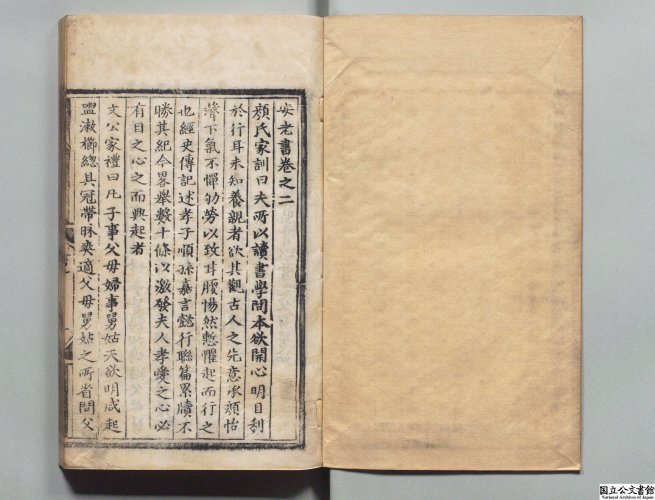 安老書卷之二
顏氏家訓曰夫所以讀書學問本欲開心明目利
於行耳未知養親者欲其觀古人之先意承顏怡
聲下氣不憚劬勞以致甘腝惕然慙懼起而行之
也經史傳記述孝子順孫嘉言懿行聯篇累牘不
勝其紀今畧舉數十條以激發夫人孝愛之心必
有目之心之而興起者
文公家禮曰凡子事父母婦事舅姑天欲明咸起
盥漱櫛總具冠帶昧爽適父母舅姑之所省問父
国立公文書館
National Archives of Japan